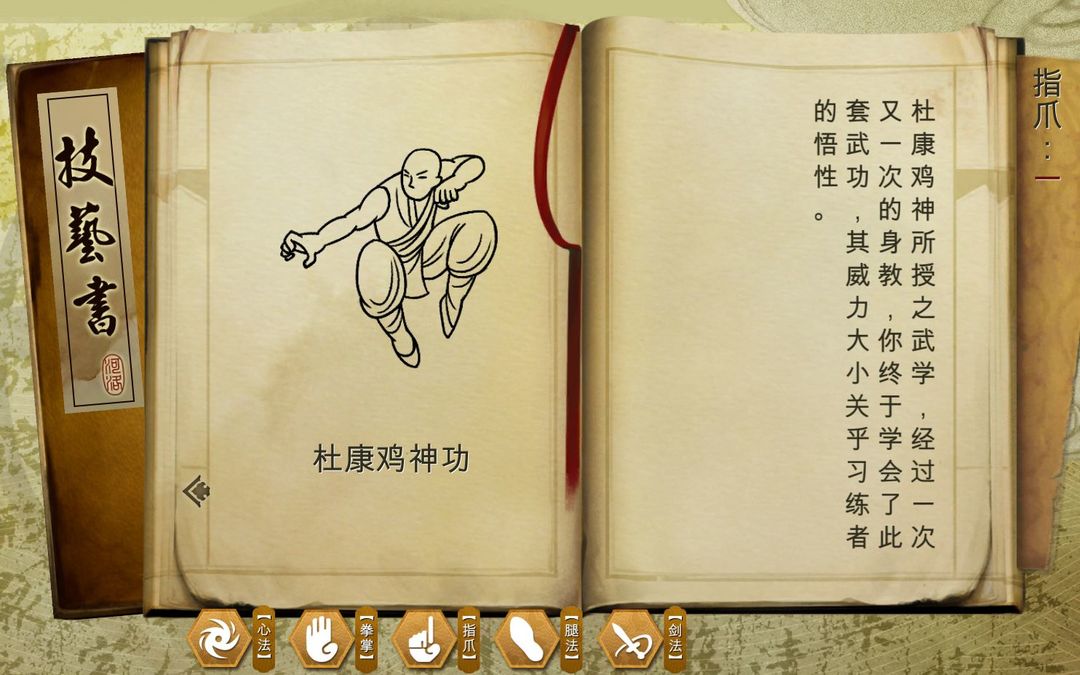 技藝書
河洛
杜康鸡神功
指爪：一
杜康鸡神所授之武学，经过一次
又一次的身教，你终于学会了此
套武功，其威力大小关乎习练者
的悟性。
【心法】
【拳掌】
【指爪】
【腿法】
【剑法】